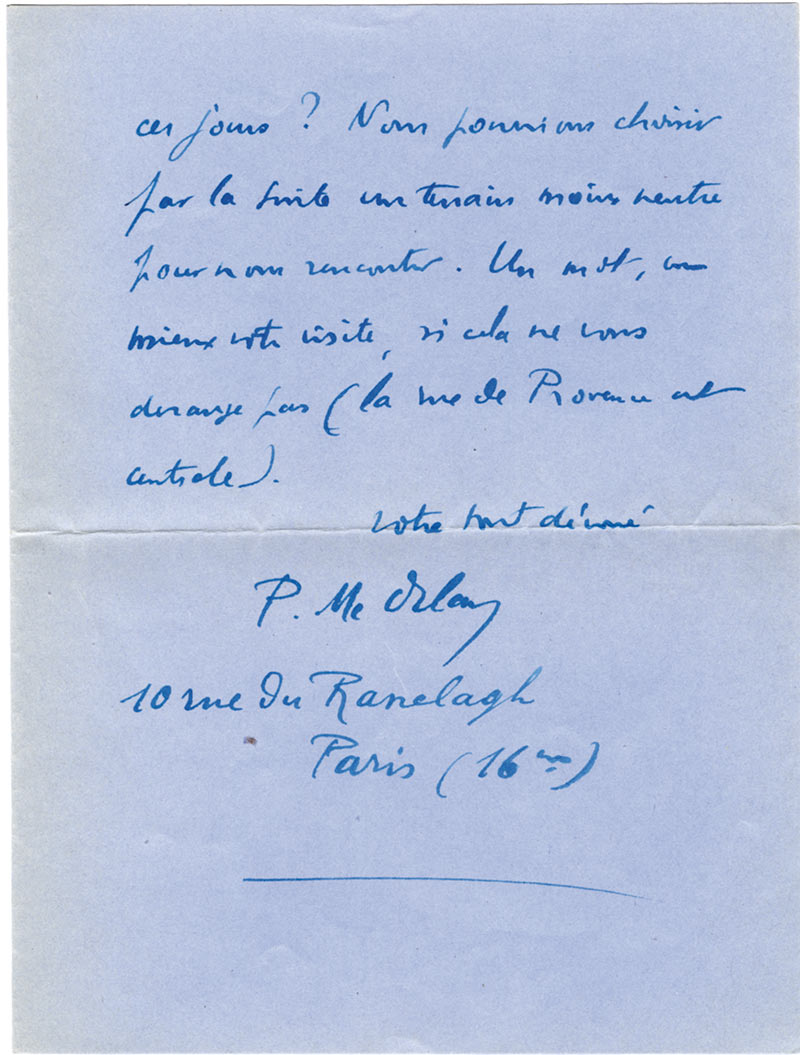 ces jours ? Nous pourrions choisir
par la suite un terrain moins neutre
pour nous rencontrer. Un mot, ou
mieux votre visite, si cela ne vous
derange pas (la rue de Provence est
centrale).
votre tout dévoué
P. Mc Orlan
10 rue du Ranelagh
Paris (16me)